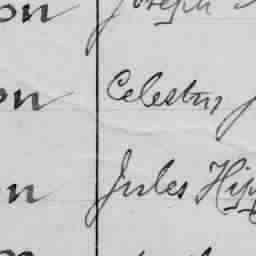 on Joseph
on Celestin
on Jules Hip